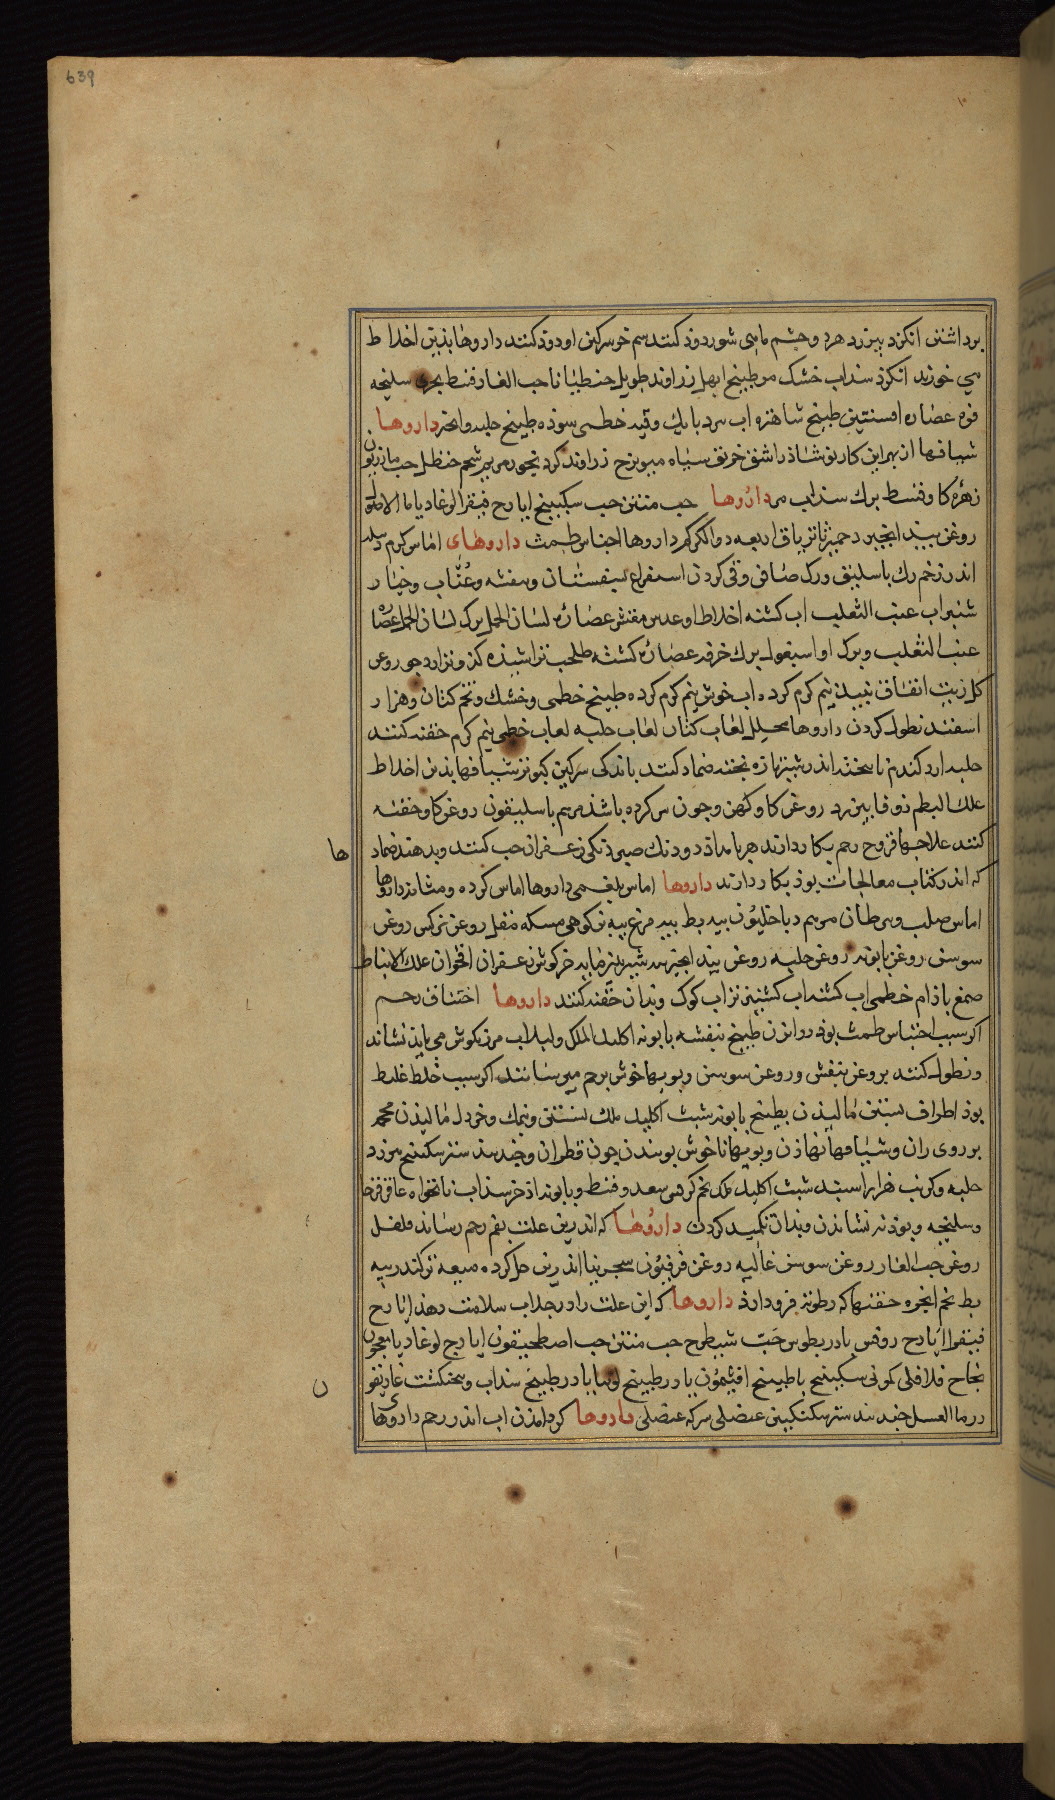 639
برداشتن انکزد بیرزد هرد و چشم ماهی شور دود کنند سم خر سرکین او دود کنند داروها بذین اخلاط
می خورند انکزد سنداب خشک مر طبیخ ابهل زراوند طویل جنطیانا حب الغار قنسط بحری سلیخه
فوه عصاره افسنتین طبیخ شاهتره اب سرد باریک وقید خطمی سوذه طبیخ حلبه وانجز داروها
شیافها از بهر این کار نوشاذر اشق خربق سیاه میویزج زراوند کرد بخور مریم شحم حنظل حب مازریون
زهره کاو قنسط برک سنداب مر داروها حب منتن حب سکبینج ایارج فیقرا لوغادیا ماالاصول
روغن بیید انجیر دحمرثا تریاق اربعه دوالکرکم داروها احتباس طمث داروهای اماس کرم
اندر زخم رک باسلیق ورک صافن وقی کردن استفراغ بنفستان وبنفشه وعناب وخیار
شنبر اب عنب الثعلب اب کشنه اخلاط او عدس مقشر عصاره لسان الحمل برک لسان الحمل عصاره
عنب الثعلب وبرک او اسبغول برک خرفه عصاره کشنه طحلب تراشیذه کذو نزار دجو روغن
کل زیت انفاق نبیذ نیم کرم کرده اب خوش نیم کرم کرده طبیخ خطمی وخشک وتخم کتان وهزار
اسفند نطول کردن داروها محلل لعاب کتان لعاب حلبه لعاب خطمی نیم کرم حقنه کنند
حلبه ارد کندم ناسخته اندر شیر تازه بخته ضماد کنند باندکی سرکین کبوتر شیافها بذین اخلاط
علک البطم زوفا بیرزد روغن کاو کهن وچون سر کرده باشذ مرهم باسلیقون روغن کاو حقنه
کنند علاجها قروح رحم بکار دارند هر بامداذ دو دنک صبر ذنکی زعفران حب کنند وبدهند ضماد
ها
که اندر کتاب معالجات بوذ بکار دارند داروها اماس بلغمی داروها اماس کرده ومثانه داروها
اماس صلب وسرطان مرهم دیاخلیون بیه بط بیه مرغ بیه بز کوهی مسکه مقل روغن نرکس روغن
سوسن روغن بابونه روغن حلبه روغن بید انجیر زعفران اقحوان علک الانباط
صمغ باذام خطمی اب کشنه اب کشنیز تر اب کوک وبدان حقنه کنند داروها اختناق رحم
اکر سبب احتباس طمث بوذ دوا نزن طبیخ بنفشه بابونه اکلیل الملک ولبلاب مرزنکوش می بایذ نشاند
ونطول کنند بروغن بنفش وروغن سوسن وبویها خوش برحم میرسانند اکر سبب خلط غلیظ
بوذ اطراف بستن مالیذن بطبیخ بابونه شبث اکلیل ملک نشستن ونمک وخردل مالیذن محجمه
بر روی ران وشیافها نهاذن وبویهانا خوش بویندن چون قطران وجندبیدستر سکبینج بیرزد
حلبه وکرنب هزار اسبند شبث اکلیل ملک تخم کرفس سعد وقنسط وبابونه اذخر سذاب نانخواه عاقرقرحا
وسلیخه وبوذنه نشاندن وبذان تکمید کردن داروها که اندرین علت بفم رحم رساند فلفل
روغن حب الغار روغن سوسن غالیه روغن فرفیون سجزینیا اندرین حل کرده میعه تر کندر بیه
بط تخم انجره حقنها که رطوبه فروداوذ داروها که این علت را وبجذاب سلامت دهذ ایارج
فیقرا ایارج روفس یادریطوس حب شبیطرج حب منتن حب اصطمحیقون ایارج لوغادیا معجون
نجاح فلافلی کمونی سکبینج با طبیخ افثیمون یا در طبیخ لوبیا یا در طبیخ سذاب وبنجنکشت غاریقو
ن
درما العسل جندبیدستر سکنکبین عنصلی سرکه عنصلی داروها کرد امذن اب اندر رحم داروی‌ها